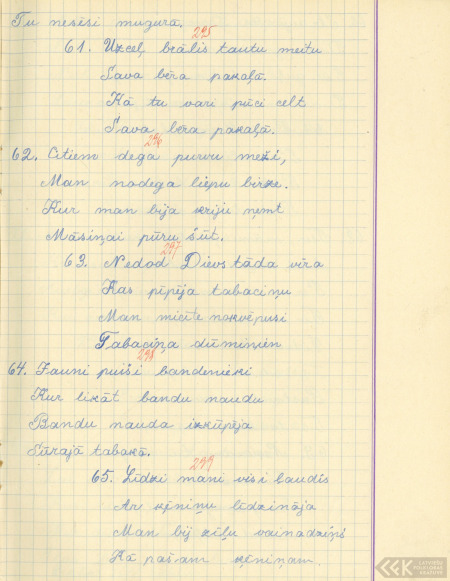 Tu nesīsi mugurā.
295
61. Uzceļ brālis tautu meitu
Sava bēra pakaļā.
Kā tu vari pūci celt
Sava bēra pakaļā.
296
62. Citiem dega purvu meži,
Man nodega liepu birze.
Kur man bija kriju ņemt
Māsiņai pūru šūt.
297
63. Nedod Dievs tāda vīra
Kas pīpēja tabaciņu
Man micīte nokvēpusi
Tabaciņa dūmiņiem
298
64. Jauni puiši bandenieki
Kur likāt bandu naudu
Bandu nauda izkūpēja
Sūrajā tabakā.
299
65. Līdzi mani visi laudis
Ar ķēniņu līdzināja
Man bij zīļu vainadziņš
Kā pašam ķēniņam.
LATVIEŠU FOLKLORAS KRĀTUVE